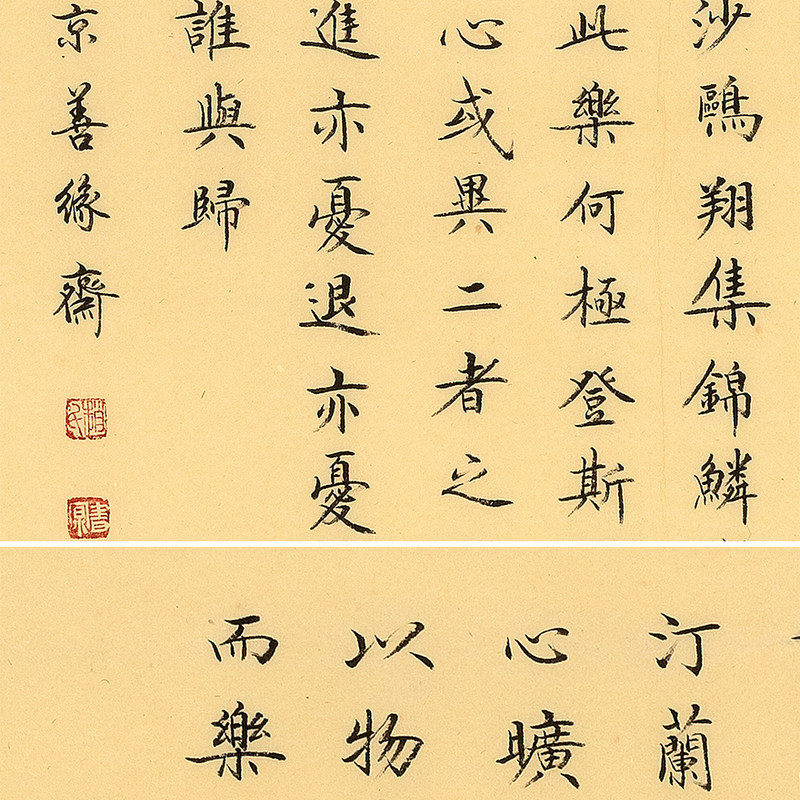 沙鷗翔集錦鱗
此樂何極登斯
心或異二者之
進亦憂退亦憂
誰與歸
京善緣齋
汀蘭
心曠
以物
而樂